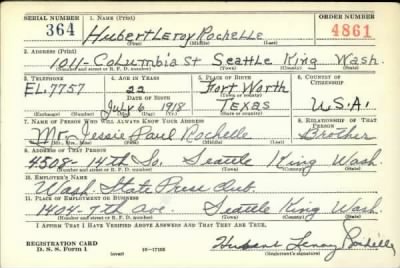 SERIAL NUMBER 1. NAME (Print) ORDER NUMBER
364 Hubert Leroy Rochelle 4861
(First) (Middle) (Last)
2. ADDRESS (Print)
1011- Columbia St Seattle King Wash.
(Number and street or R. F. D. number) (Town) (County) (State)
3. TELEPHONE 4. AGE IN YEARS 5. PLACE OF BIRTH 6. COUNTRY OF CITIZENSHIP
EL. 7757 22 Fort Worth
DATE OF BIRTH (Town or county)
July 6 1918 Texas U.S.A.
(Exchange) (Number) (Mo.) (Day) (Yr.) (State or country)
7. NAME OF PERSON WHO WILL ALWAYS KNOW YOUR ADDRESS 8. RELATIONSHIP OF THAT PERSON
Mr. Jessie Paul Rochelle Brother
(Mr., Mrs., Miss) (First) (Middle) (Last)
9. ADDRESS OF THAT PERSON
4508- 14th So. Seattle King Wash.
(Number and street or R. F. D. number) (Town) (County) (State)
10. EMPLOYER'S NAME
Wash State Press Club.
11. PLACE OF EMPLOYMENT OR BUSINESS
1404- 7th ave. Seattle King Wash.
(Number and street or R. F. D. number) (Town) (County) (State)
I AFFIRM THAT I HAVE VERIFIED ABOVE ANSWERS AND THAT THEY ARE TRUE.
REGISTRATION CARD
D. S. S. Form 1 (over) 16-17105 Hubert Leroy Rochelle
(Registrant's signature)